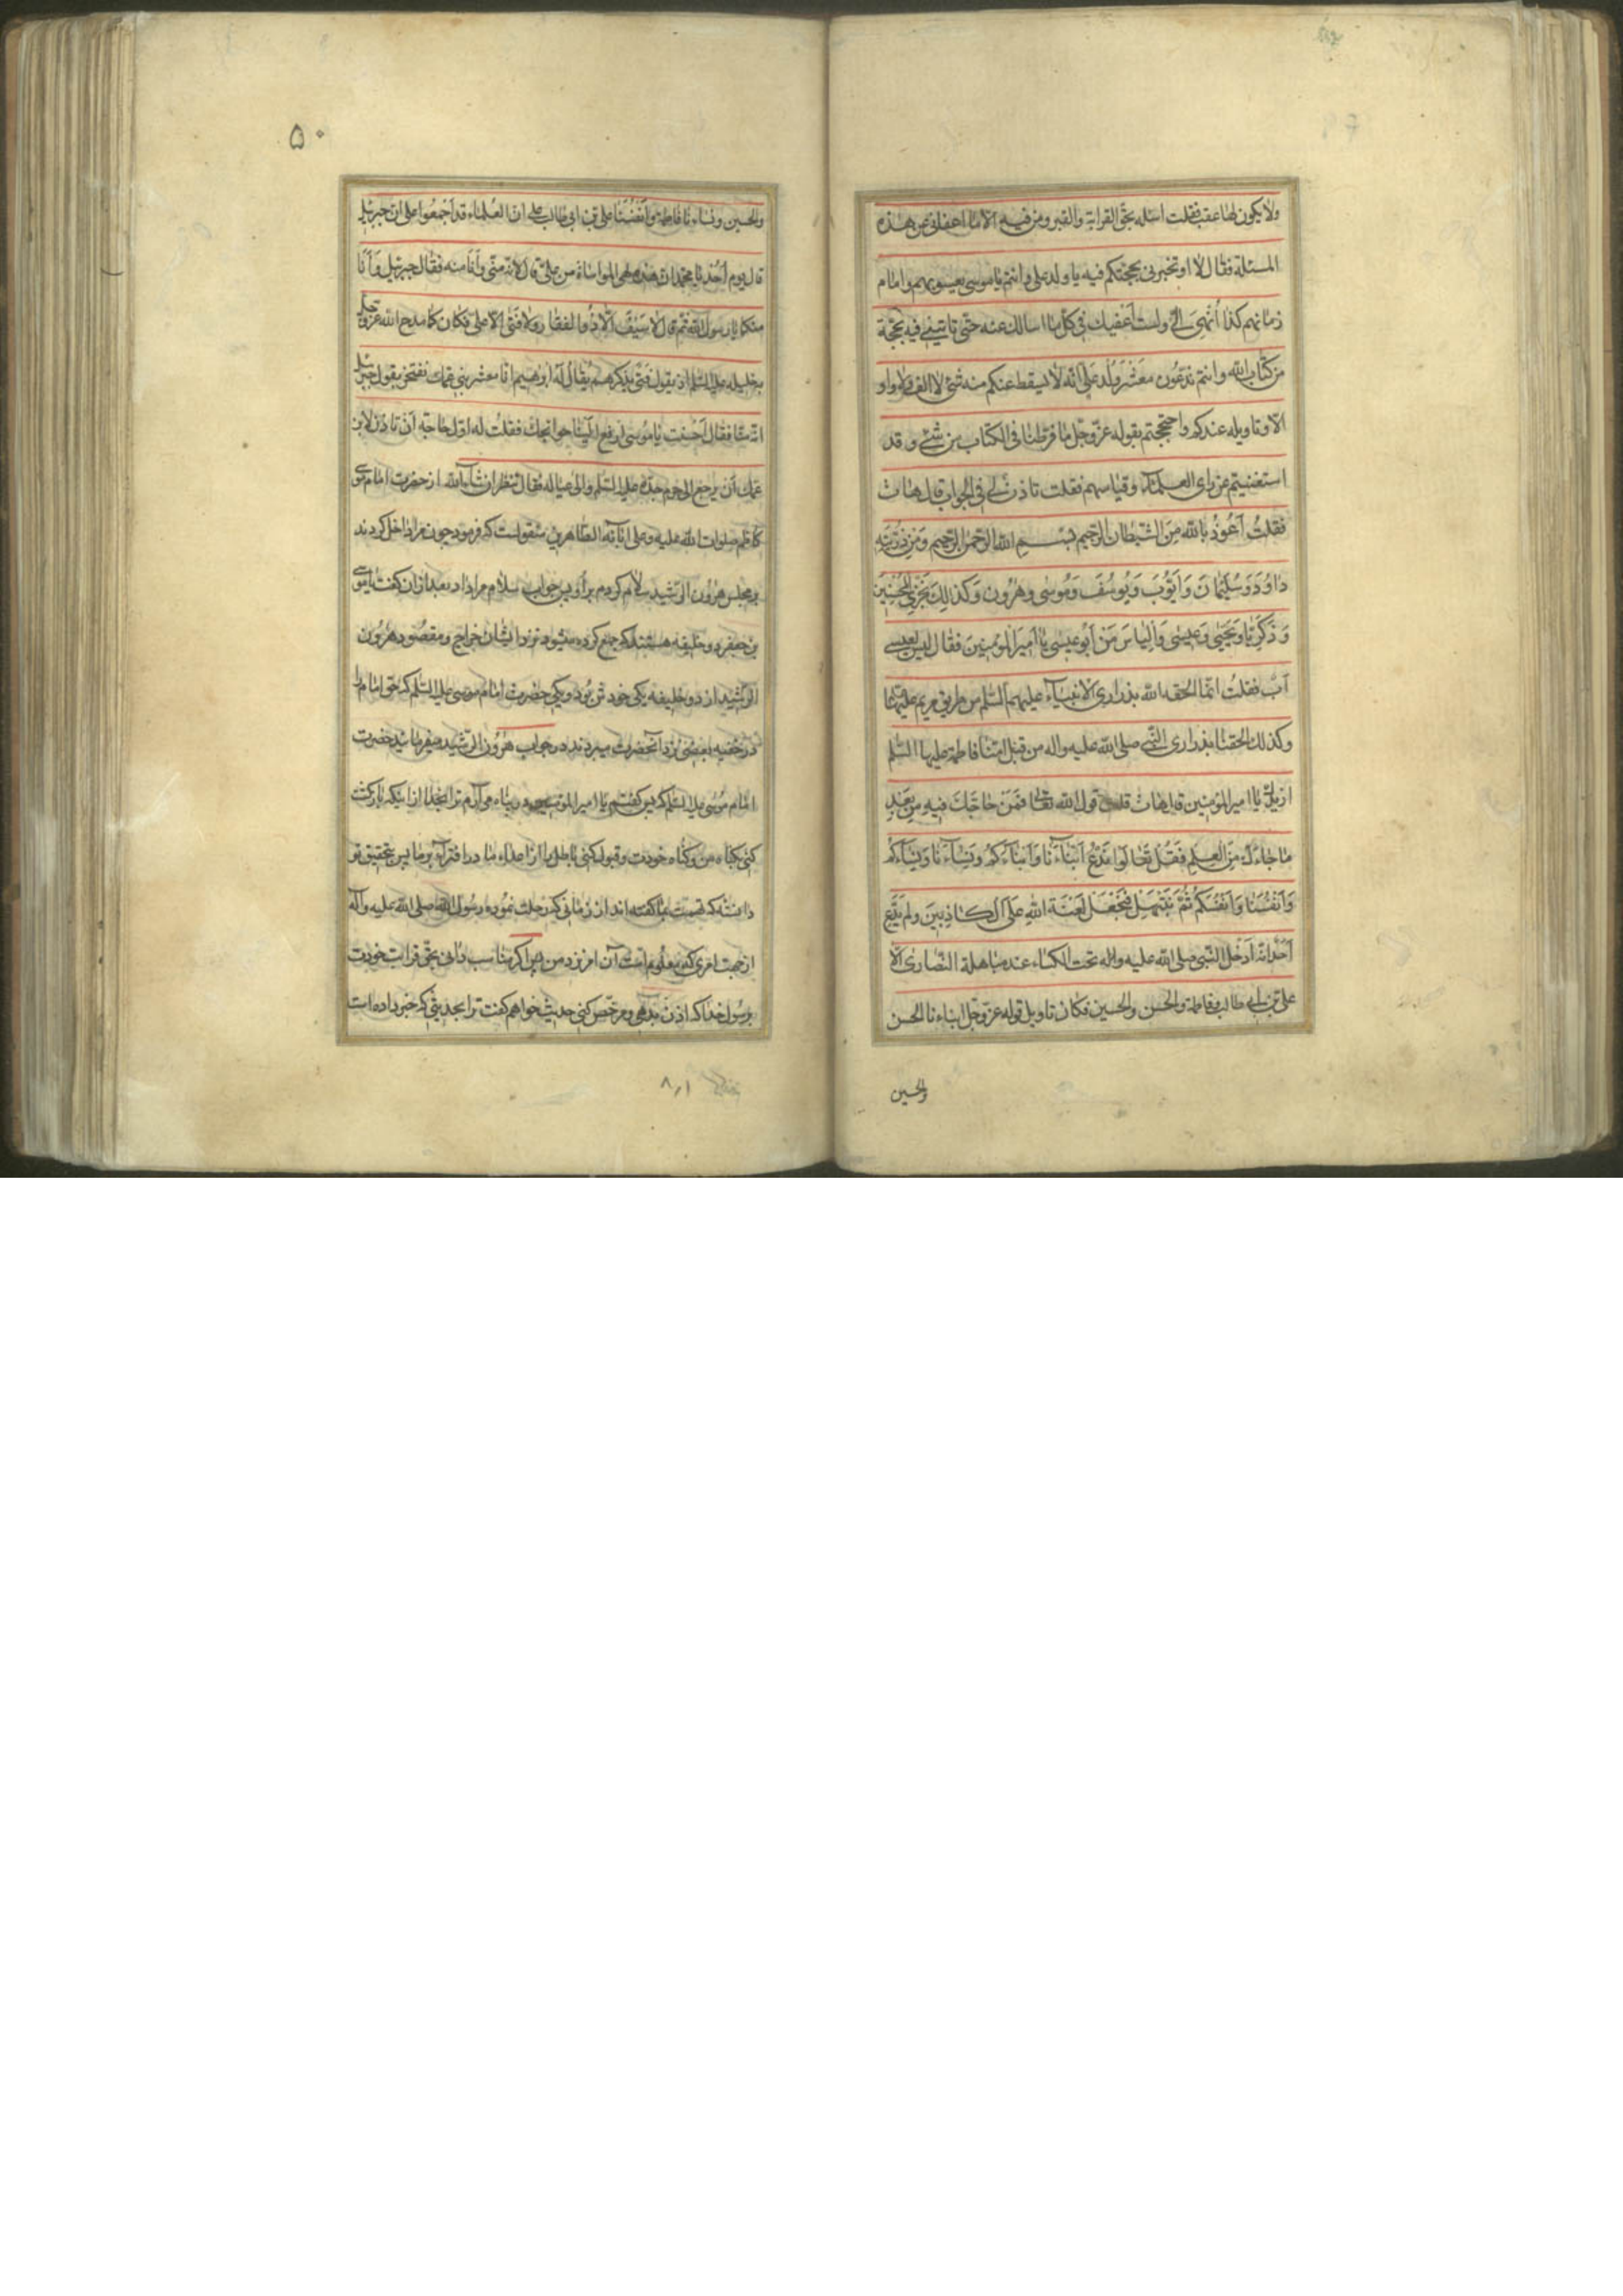 ولا يكون لها عقب فقلت اسئله بحق القرابة والقبر ومن فيه الا ما اعفانى عن هذه
المسئلة فقال لا او تخبرنى بحجتكم فيه يا ولد على وانتم يا موسى يعسوبهم وامام
زمانهم كذا اُنْهِىَ الىّ ولست اعفيك فى كل ما اسالك عنه حتى تاتينى فيه بحجة
من كتاب الله وانتم تدعون معشر ولد على انه لا يسقط عنكم منه شئ لا الف ولا واو
الا وتاويله عندكم واحتججتم بقوله عز وجل ما فرطنا فى الكتاب من شئ وقد
استغنيتم عن راى العلماء وقياسهم فقلت تاذن لى فى الجواب قال هات
فقلتُ اَعُوذُ بالله مِنَ الشيطان الرجيم بسم الله الرحمن الرحيم وَمِنْ ذُرِّيَّتِهِ
داوُدَ وَسُلَيْمانَ وَاَيُّوبَ وَيُوسُفَ وَمُوسى وهٰرُون وَكَذلِكَ نَجْزِى الْمُحْسِنِينَ
وَزَكَرِيّا وَيَحْيى وَعيسى وَاِلْياسَ مَنْ اَبُو عيسى يا اَميرَ المؤمنِينَ فقال ليس لعيسى
اَبٌ فقلتُ انما الحقه الله بذرارى الانبياء عليهم السلم من طريق مريم عليها
وكذلك الحقنا بذرارى النبى صلى الله عليه واله من قبل امنا فاطمة عليها السلم
ازيدك يا امير المؤمنين قال هات قلت قول الله تعالى فَمَنْ حاجَّكَ فيهِ مِنْ بَعْدِ
ما جاءَكَ مِنَ العِلْمِ فَقُلْ تَعالَوْا نَدْعُ اَبْناءَنا وَاَبْناءَكُمْ وَنِساءَنا وَنِساءَكُمْ
وَاَنْفُسَنا وَاَنْفُسَكُمْ ثُمَّ نَبْتَهِلْ فَنَجْعَلْ لَعْنَةَ اللهِ عَلَى الْكاذِبِينَ ولم يدّع
اَحَدٌ انه اَدْخَلَ النبى صلى الله عليه واله تحت الكساء عند مباهلة النصارى الا
على بن ابى طالب وفاطمة والحسن والحسين فكان تاويل قوله عز وجل ابناءنا الحسن
والحسين
۵۰
والحسين ونساءنا فاطمة وانفسنا على بن ابى طالب على ان العلماء قد اجمعوا على ان جبرئيل
قال يوم اُحُد يا محمد ان هذه لهى المواساة من على قال لانه منى وانا منه فقال جبرئيل وَاَنا
منكما يا رسول الله ثم قال لا سَيْفَ الا ذُو الفقار ولا فتى الا على فكان كما مدح الله عز وجل
به خليله عليه السلم اذ يقول فتى يذكرهم يقال له ابرهيم انا معشر بنى عمك نفتخر بقول جبرئيل
انه منا فقال اَحسنت يا موسى ارفع الينا حوائجك فقلت له اول حاجة اَن تاذن لابن
عمك اَن يرجع الى حرم جده عليه السلم والى عياله فقال ننظر ان شاء الله از حضرت امام موسى
كاظم صلوات الله عليه وعلى ابائه الطاهرين منقولست كه فرمود چون مرا داخل كردند
بر مجلس هرُون الرشيد سلام كردم بر او پس جواب سلام مرا داد بعد از ان گفت يا موسى
بن جعفر دو خليفه هستند كه جمع كرده ميشود نزد ايشان خراج ومقصود هرُون
الرشيد از دو خليفه يكى خودش بُود ويكى حضرت امام موسى عليه السلم كه حق امام را
در خفيه بعضى نزد آنحضرت ميبردند در جواب هرُون الرشيد ميفرمايد حضرت
امام مُوسى عليه السلم كه پس گفتم يا امير المؤمنين در پناه مى آرم ترا بخدا از اينكه بازگشت
كنى بگناه من وگناه خودت وقبول كنى باطل را از اعداء ما در افترا بر ما پس بتحقيق تو
دانسته كه تهمت بما گفته اند از زمانى كه رحلت نموده رسول الله صلى الله عليه وآله
از جهت امرى كه معلُوم است آن امر نزد من پس اگر مناسب دانى بحق قرابت خودت
برسُول خدا كه اذن بدهى ومرخّص كنى حديث خواهم گفت ترا بحديثى كه خبر داده است